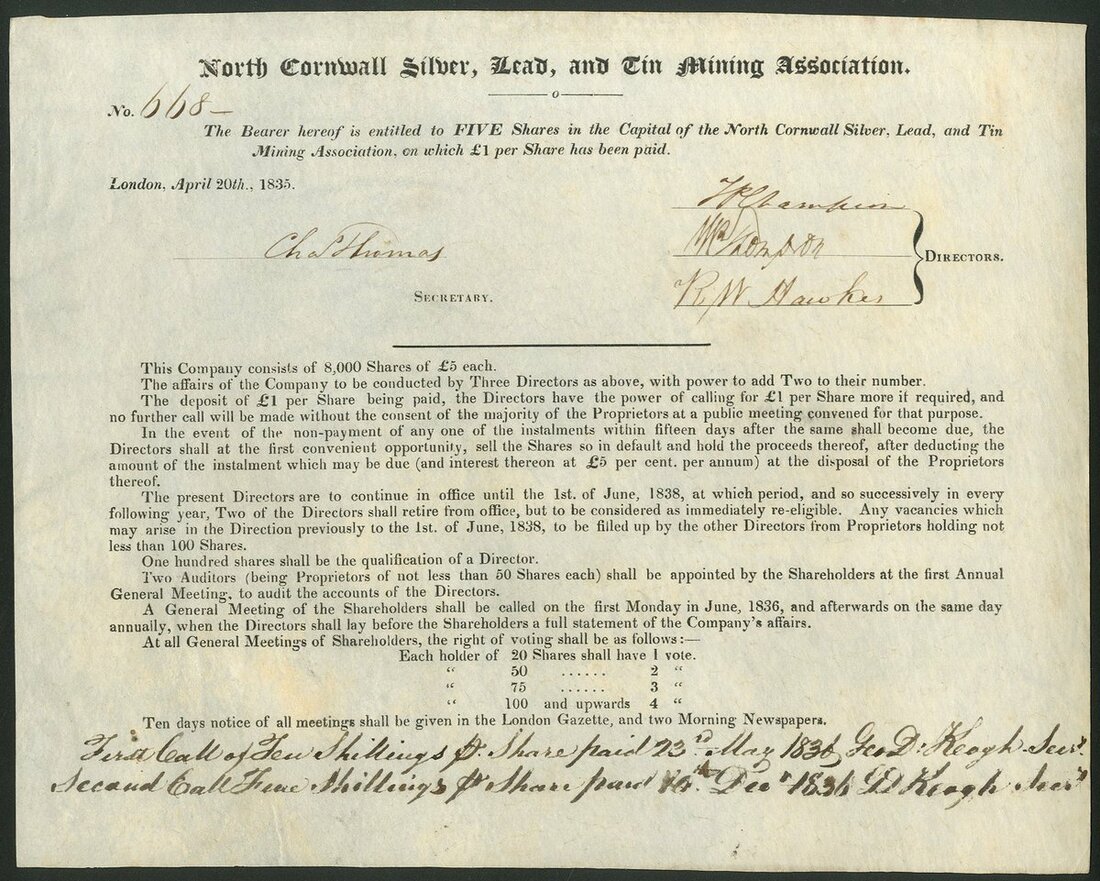 North Cornwall Silver, Lead, and Tin Mining Association.
No. 668—
The Bearer hereof is entitled to FIVE Shares in the Capital of the North Cornwall Silver, Lead, and Tin
Mining Association, on which £1 per Share has been paid.
London, April 20th., 1835.
Champion
Chas Thomas
DIRECTORS.
R. W. Hawker
SECRETARY.
This Company consists of 8,000 Shares of £5 each.
The affairs of the Company to be conducted by Three Directors as above, with power to add Two to their number.
The deposit of £1 per Share being paid, the Directors have the power of calling for £1 per Share more if required, and
no further call will be made without the consent of the majority of the Proprietors at a public meeting convened for that purpose.
In the event of the non-payment of any one of the instalments within fifteen days after the same shall become due, the
Directors shall at the first convenient opportunity, sell the Shares so in default and hold the proceeds thereof, after deducting the
amount of the instalment which may be due (and interest thereon at £5 per cent. per annum) at the disposal of the Proprietors
thereof.
The present Directors are to continue in office until the 1st. of June, 1838, at which period, and so successively in every
following year, Two of the Directors shall retire from office, but to be considered as immediately re-eligible. Any vacancies which
may arise in the Direction previously to the 1st. of June, 1838, to be filled up by the other Directors from Proprietors holding not
less than 100 Shares.
One hundred shares shall be the qualification of a Director.
Two Auditors (being Proprietors of not less than 50 Shares each) shall be appointed by the Shareholders at the first Annual
General Meeting, to audit the accounts of the Directors.
A General Meeting of the Shareholders shall be called on the first Monday in June, 1836, and afterwards on the same day
annually, when the Directors shall lay before the Shareholders a full statement of the Company's affairs.
At all General Meetings of Shareholders, the right of voting shall be as follows:—
Each holder of 20 Shares shall have 1 vote.
“ 50 ...... 2 “
“ 75 ...... 3 “
“ 100 and upwards 4 “
Ten days notice of all meetings shall be given in the London Gazette, and two Morning Newspapers.
First Call of Ten Shillings pr Share paid 23rd May 1836 Geo D: Keogh Secy.
Second Call Five Shillings pr Share paid Decr 1836 GD Keogh Secy